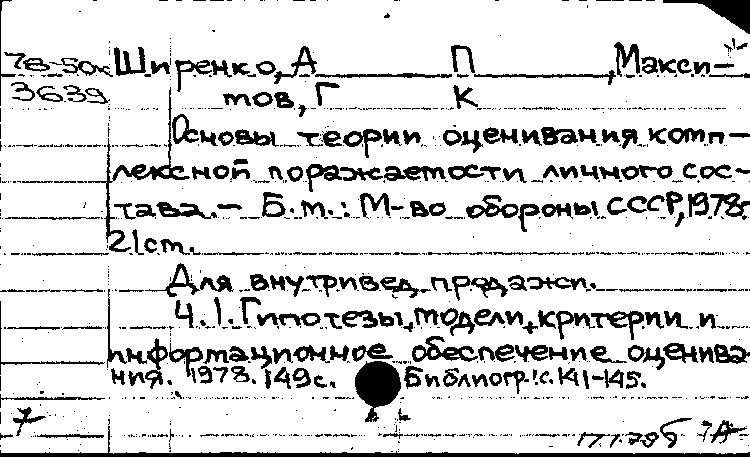 78-50к Ширенко, А П , Макси-
3639 тов, Г К
Основы теории оценивания комп-
лексной поражаемости личного сос-
тава.— Б.м.: М-во обороны СССР, 1978.
21 см.
Для внутривед. продажи.
Ч.1. Гипотезы, модели, критерии и
информационное обеспечение оценива-
ния. 1978. 149 с. Библиогр.: с. 141-145.